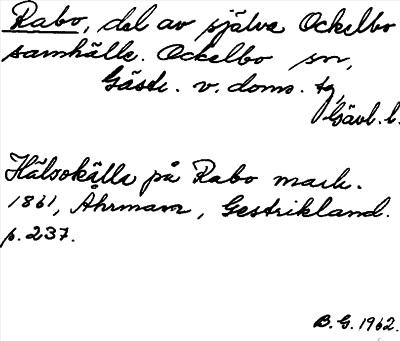 Rabo, del av själva Ockelbo
samhälle. Ockelbo sn,
Gästr. v. doms. tg,
Gävl. l.
Hälsokälla på Rabo mark.
1861, Åhrman, Gestrikland.
p. 237.
B. G. 1962.